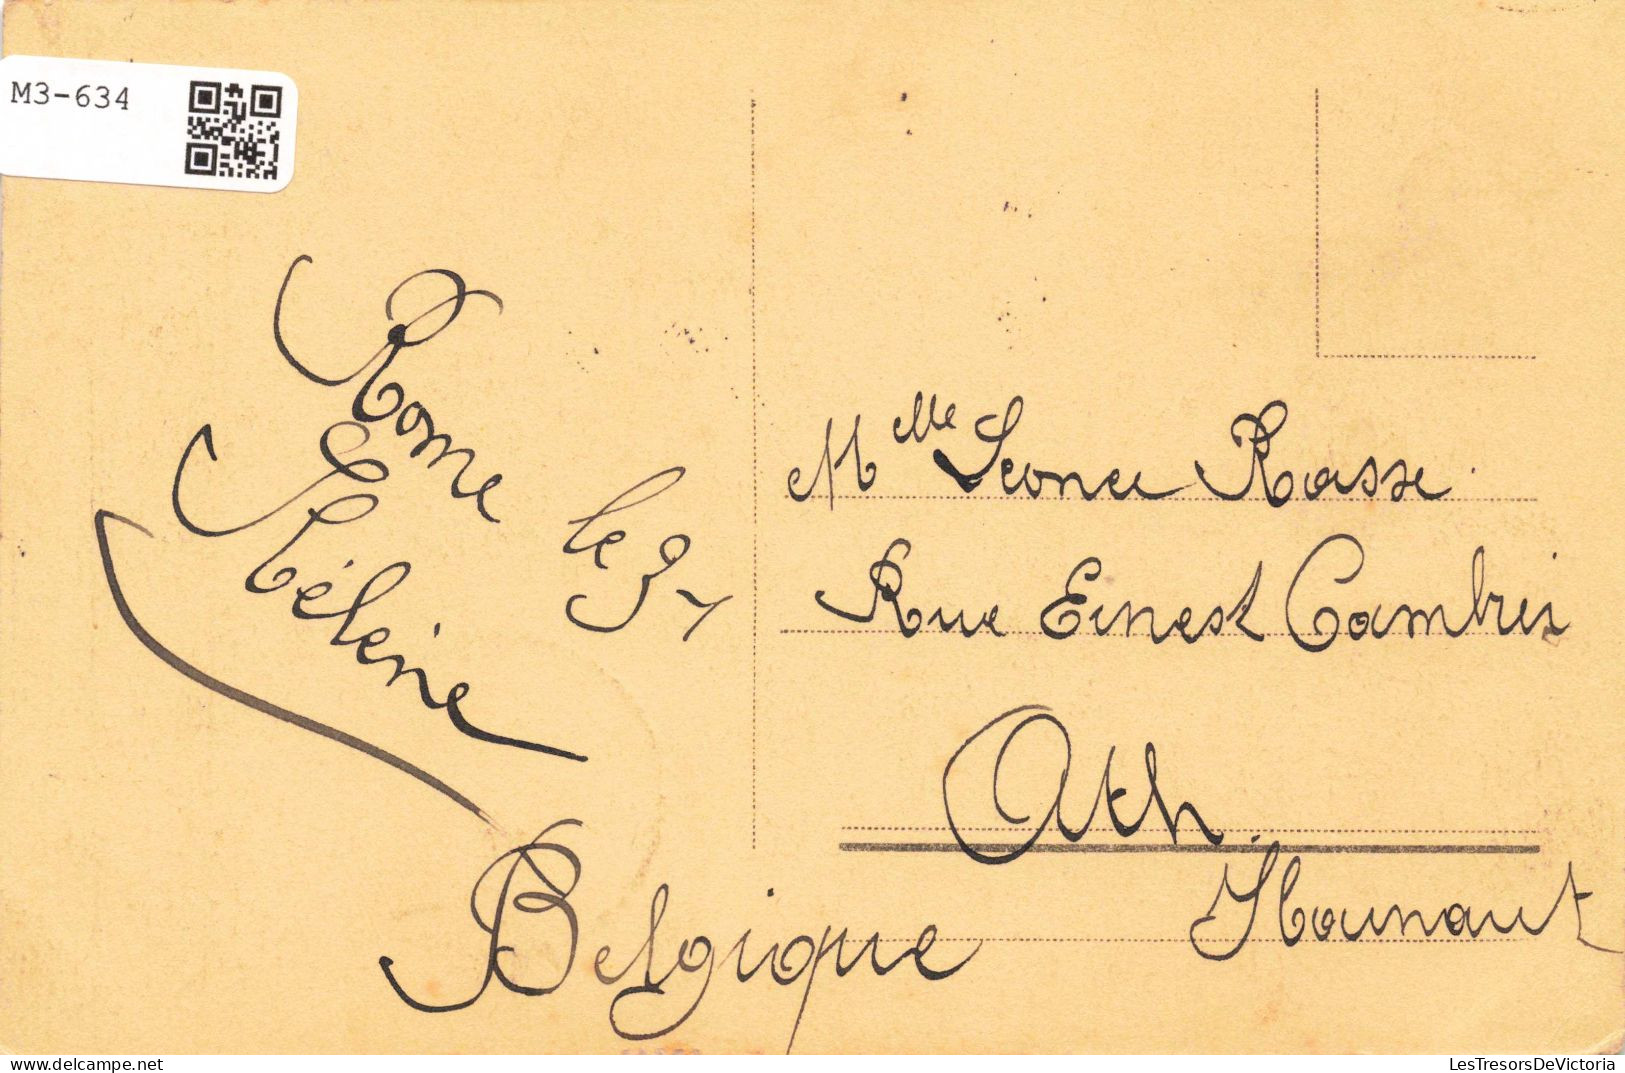 M3-634
Rome le 31
Hélène
Mlle Leonce Rasse.
Rue Ernest Cambier
Ath.
Hainaut
Belgique
LesTresorsDeVictoria